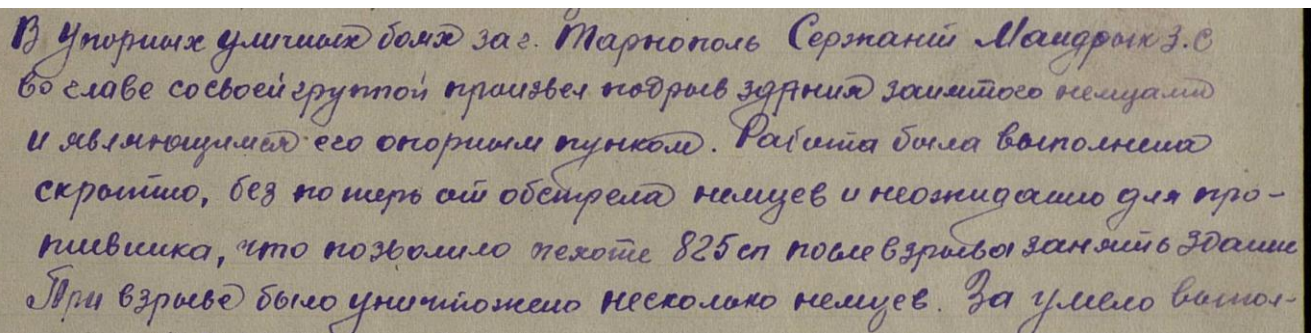 В упорных уличных боях за г. Тарнополь Сержант Мандрык З.С
во главе со своей группой произвел подрыв здания занятого немцами
и являющимся его опорным пунком. Работа была выполнена
скрытно, без потерь от обстрела немцев и неожиданно для про-
тивника, что позволило пехоте 825 сп после взрыва занять здание
При взрыве было уничтожено несколько немцев. За умело выпол-